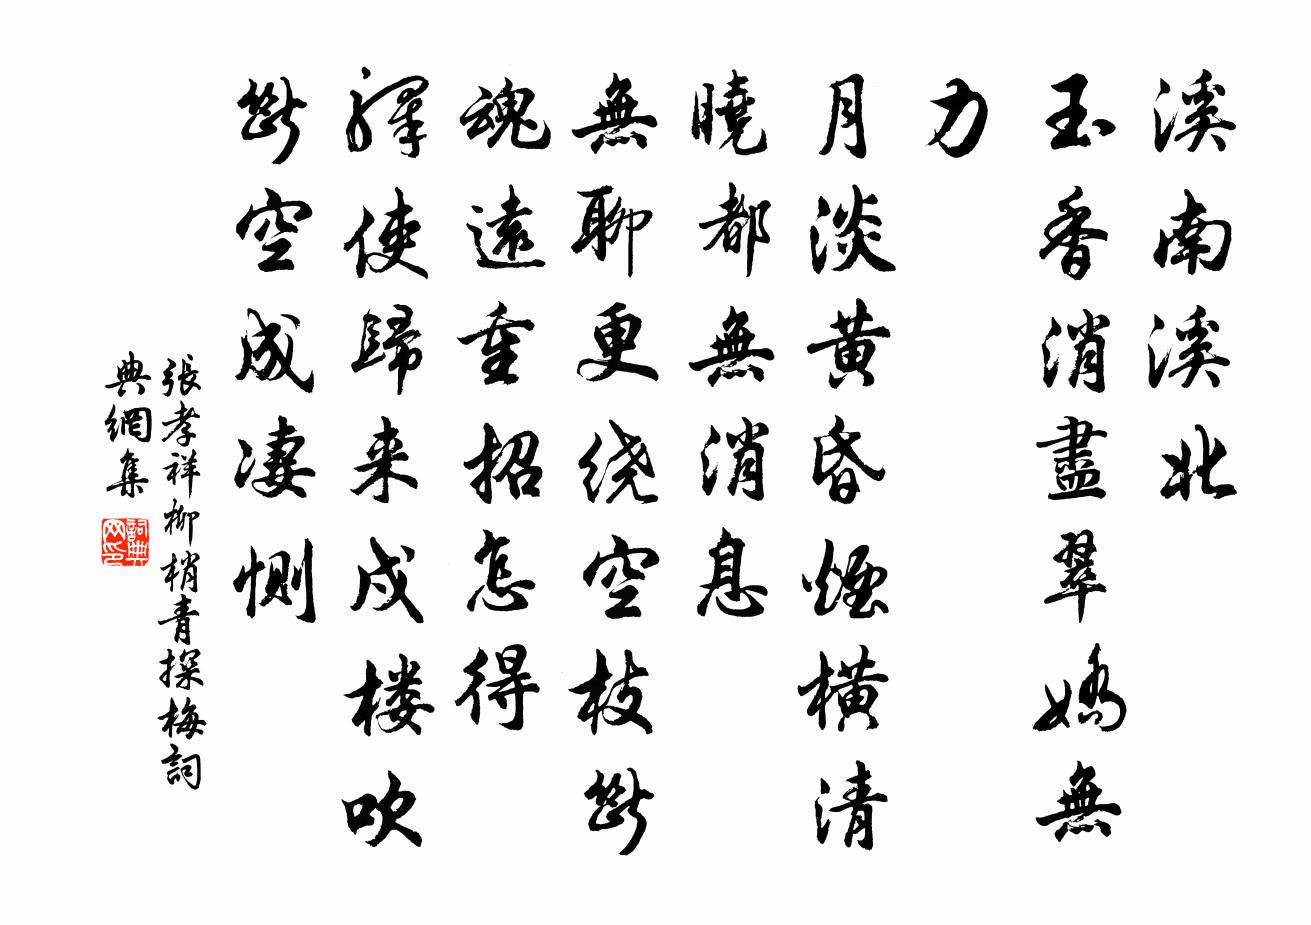 溪南溪北
玉香消盡翠嬌無
力
月淡黄昏煙橫清
曉都無消息
無聊更绕空枝斷
魂遠重招怎得
驛使歸来戍楼吹
斷空成凄惻
張孝祥柳梢青探梅詞
典網集
詞典网印